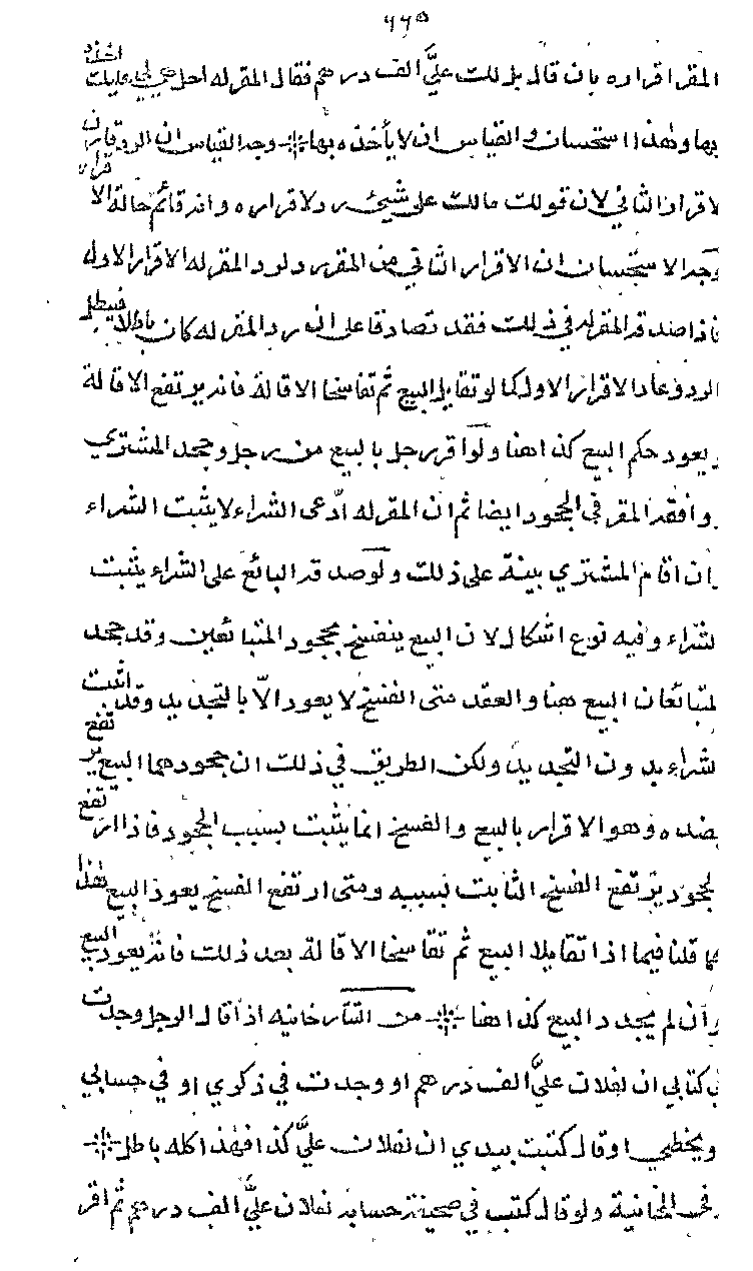 ٦٦٥
المقر اقراره بان قال بل لك عليَّ الف درهم فقال المقر له اجل هي لي عليك اخذه
بها وهذا استحسان والقياس ان لا يأخذه بها وجه القياس ان الرد قارن
لاقرار الثاني لان قولك مالك على شيئ رد لاقراره وانه قائم حالة الاقرار
وجه الاستحسان ان الاقرار الثاني من المقر رد لرد المقر له الاقرار الاول
فاذا صدقه المقر له في ذلك فقد تصادقا على ان رد المقر له كان باطلا فيبطل
الرد وعاد الاقرار الاول كما لو تقايلا البيع ثم تفاسخا الاقالة فانه يرتفع الاقالة
ويعود حكم البيع كذا هنا ولو اقر رجل بالبيع من رجل وجحد المشتري
ووافقه المقر في الجحود ايضا ثم ان المقر له ادّعى الشراء لا يثبت الشراء
وان اقام المشتري بينة على ذلك ولو صدقه البائع على الشراء يثبت
الشراء وفيه نوع اشكال لان البيع ينفسخ بجحود المتبائعين وقد جحد
المتبائعان البيع هنا والعقد متى الفسخ لا يعود الّا بالتجديد وقد اثبت
الشراء بدون التجديد ولكن الطريق في ذلك ان جحودهما البيع يرتفع
بضده وهو الاقرار بالبيع والفسخ انما يثبت بسبب الجحود فاذا ارتفع
الجحود يرتفع الفسخ الثابت بسببه ومتى ارتفع الفسخ يعود البيع هذا
كما قلنا فيما اذا تقايلا البيع ثم تفاسخا الاقالة بعد ذلك فانه يعود البيع
وان لم يجدد البيع كذا هنا من التتارخانيه اذا قال الرجل وجدت
في كتابي ان لفلان عليَّ الف درهم او وجدت في ذكري او في حسابي
وبخطي او قال كتبت بيدي ان لفلان عليَّ كذا فهذا كله باطل
وفي الخانية ولو قال كتب في صحيفة حسابه لفلان عليَّ الف درهم ثم اقر